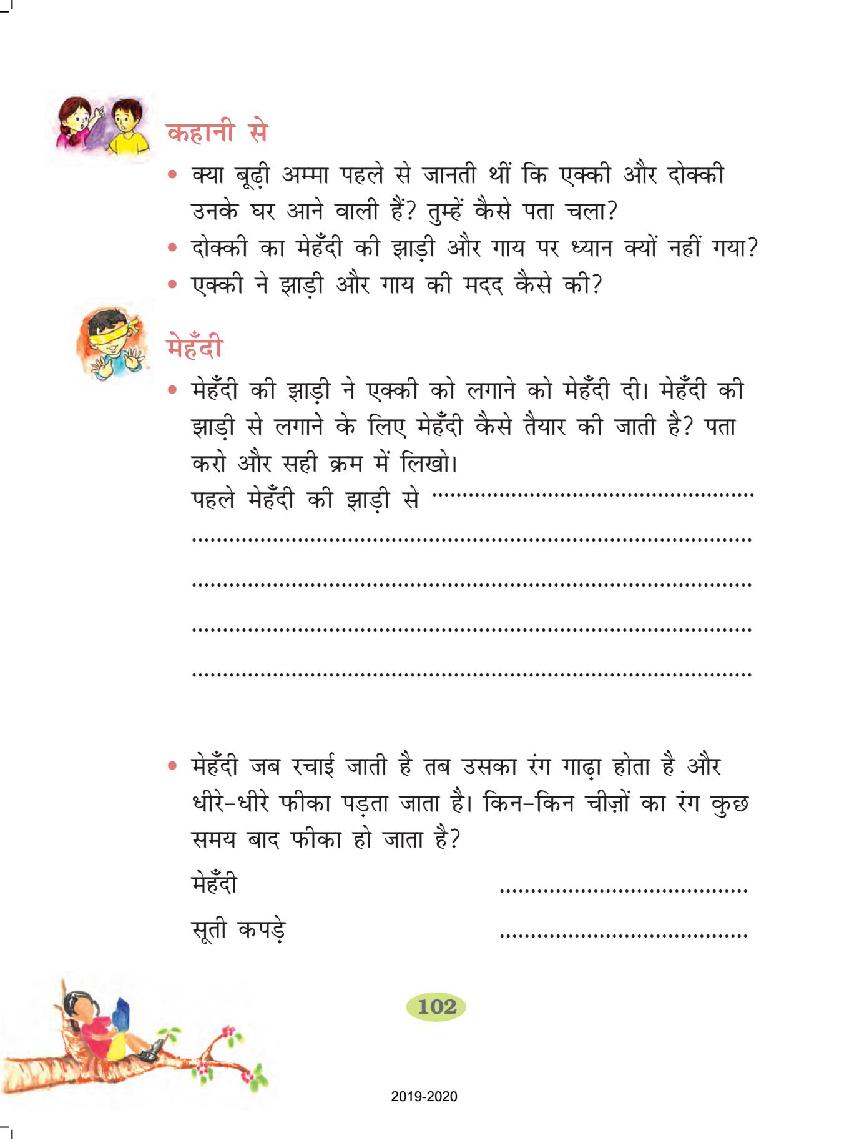 कहानी से
• क्या बूढ़ी अम्मा पहले से जानती थीं कि एक्की और दोक्की
उनके घर आने वाली हैं? तुम्हें कैसे पता चला?
• दोक्की का मेहँदी की झाड़ी और गाय पर ध्यान क्यों नहीं गया?
• एक्की ने झाड़ी और गाय की मदद कैसे की?
मेहँदी
• मेहँदी की झाड़ी ने एक्की को लगाने को मेहँदी दी। मेहँदी की
झाड़ी से लगाने के लिए मेहँदी कैसे तैयार की जाती है? पता
करो और सही क्रम में लिखो।
पहले मेहँदी की झाड़ी से ......................................................
..............................................................................................
..............................................................................................
..............................................................................................
..............................................................................................
• मेहँदी जब रचाई जाती है तब उसका रंग गाढ़ा होता है और
धीरे-धीरे फीका पड़ता जाता है। किन-किन चीज़ों का रंग कुछ
समय बाद फीका हो जाता है?
मेहँदी ........................................
सूती कपड़े ........................................
102
2019-2020